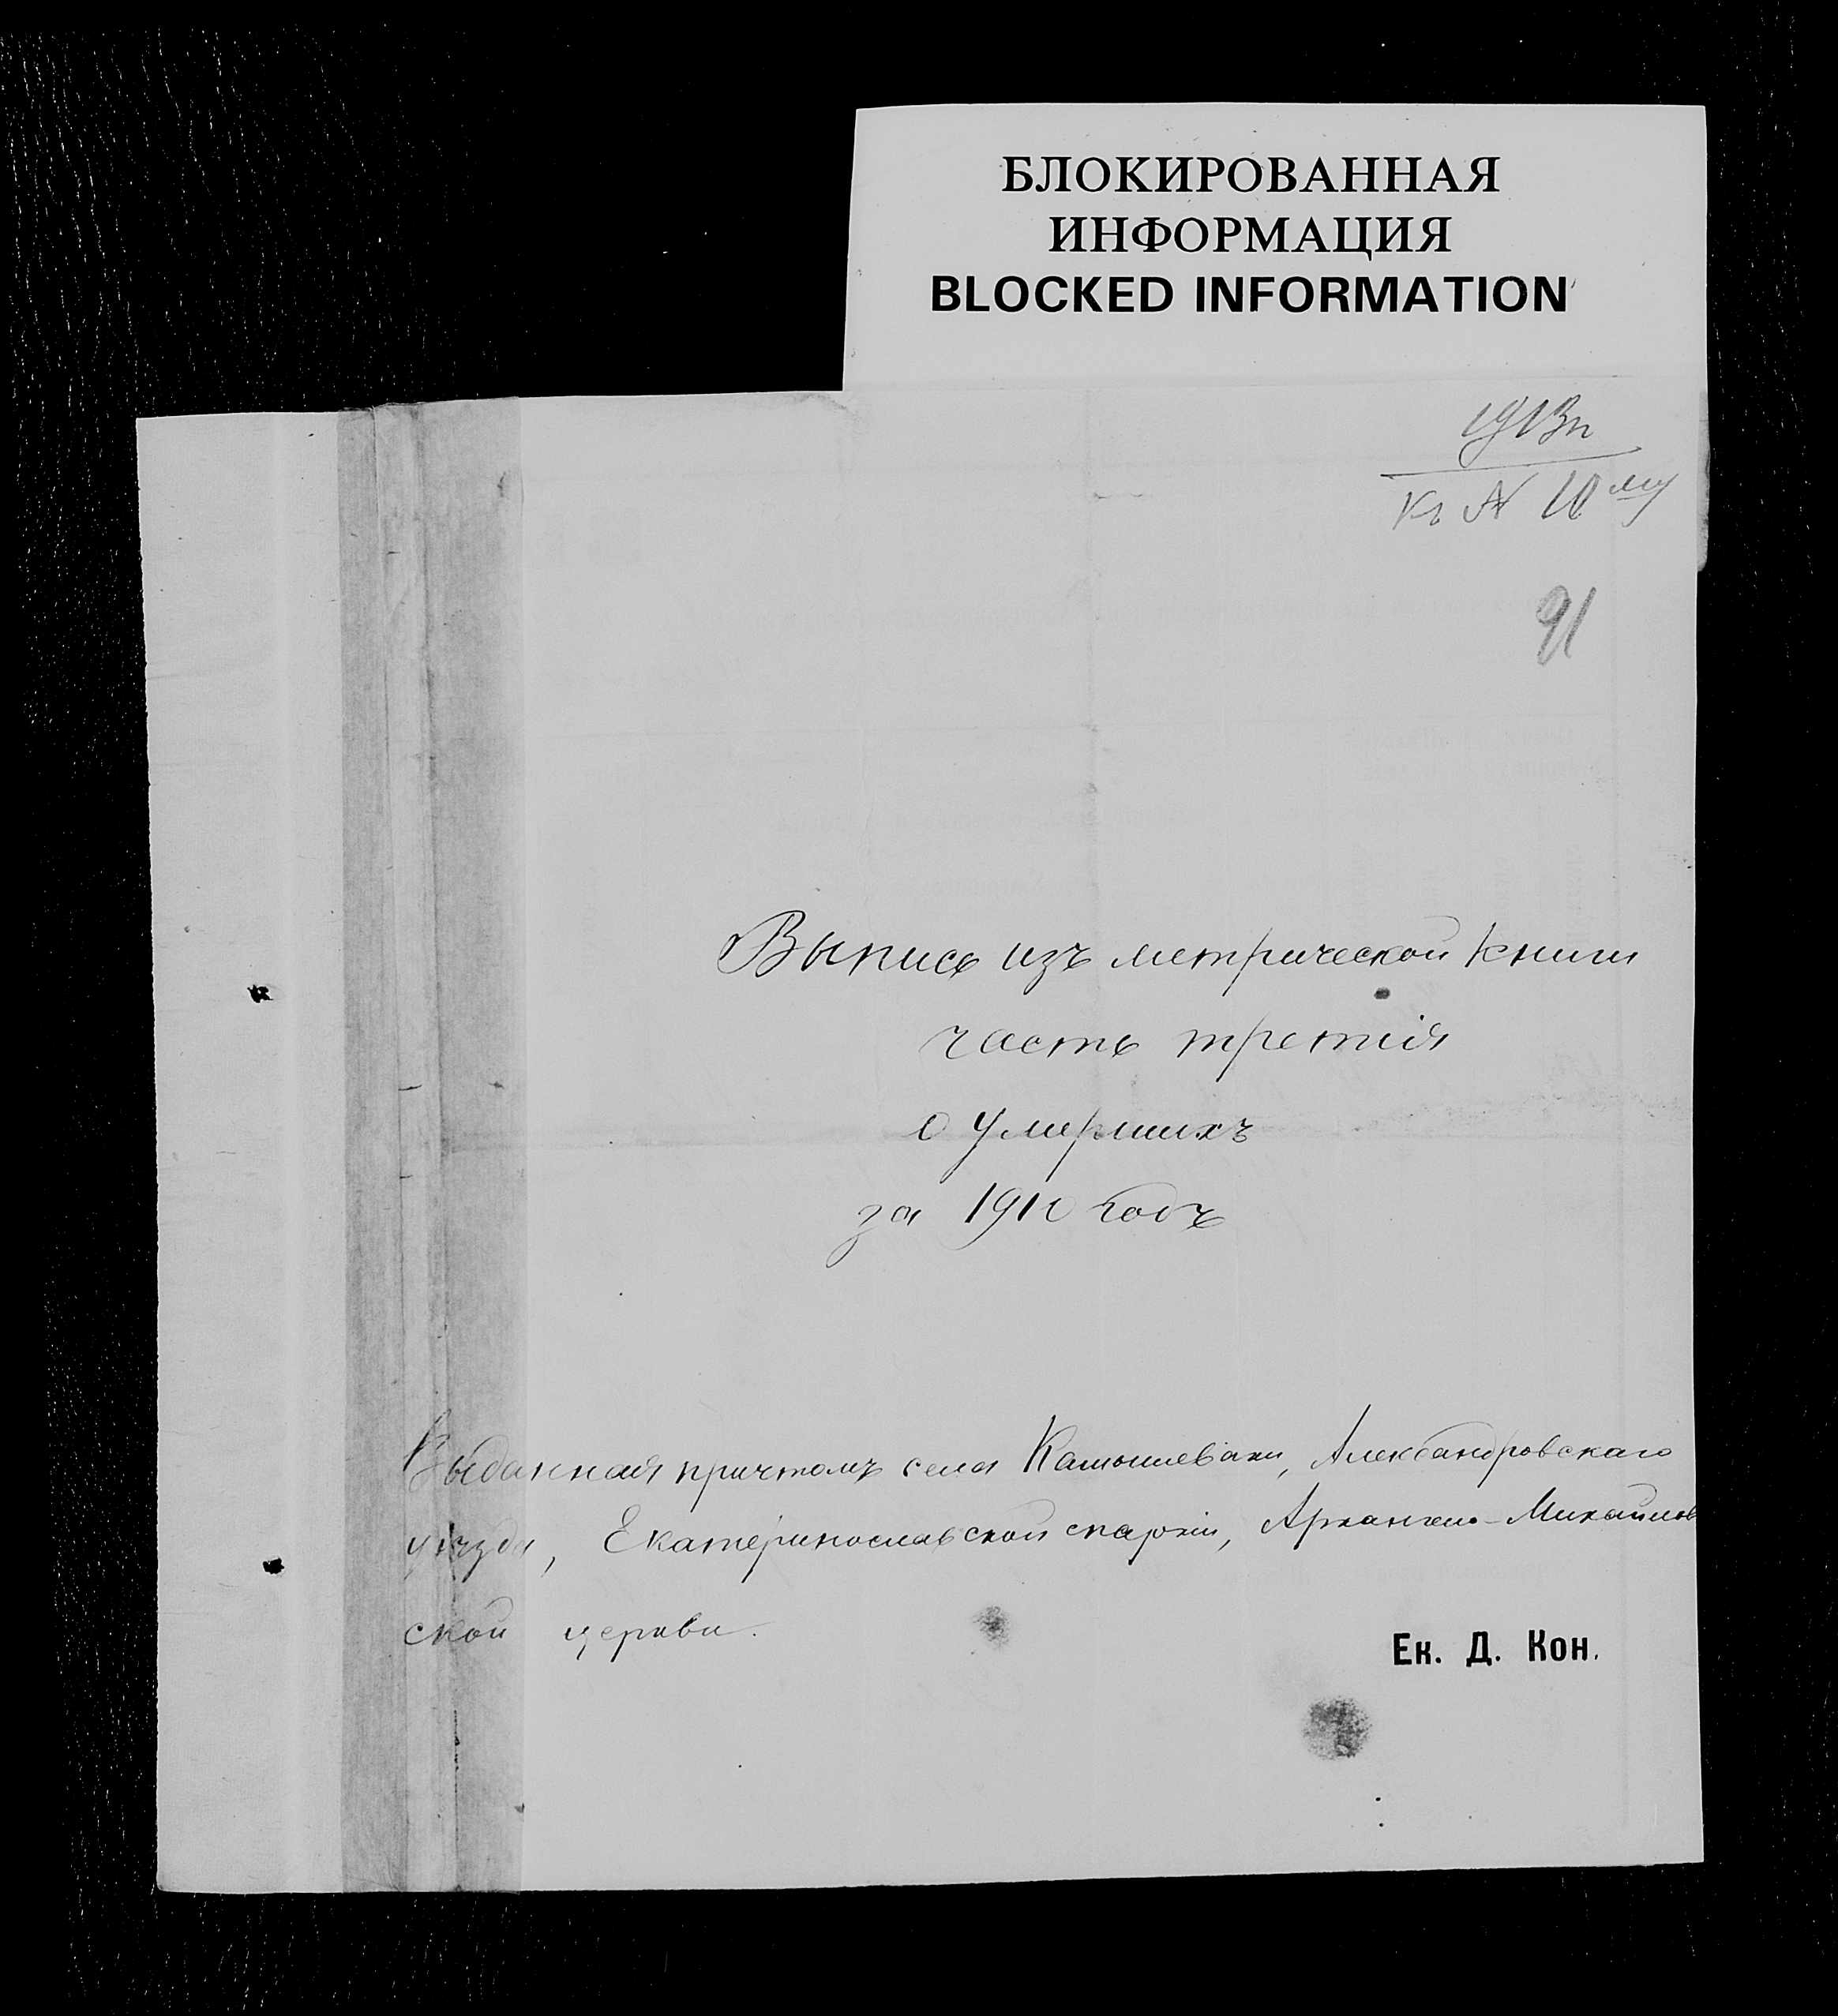 БЛОКИРОВАННАЯ
ИНФОРМАЦИЯ
BLOCKED INFORMATION
1913 г
Къ № 10му
91
Выпись изъ метрической книги
часть третія
о умершихъ
за 1910 годъ
Выданная причтомъ села Камышевахи, Александровскаго
уѣзда, Екатеринославской епархіи, Архангело-Михайлов
ской церкви.
Ек. Д. Кон.